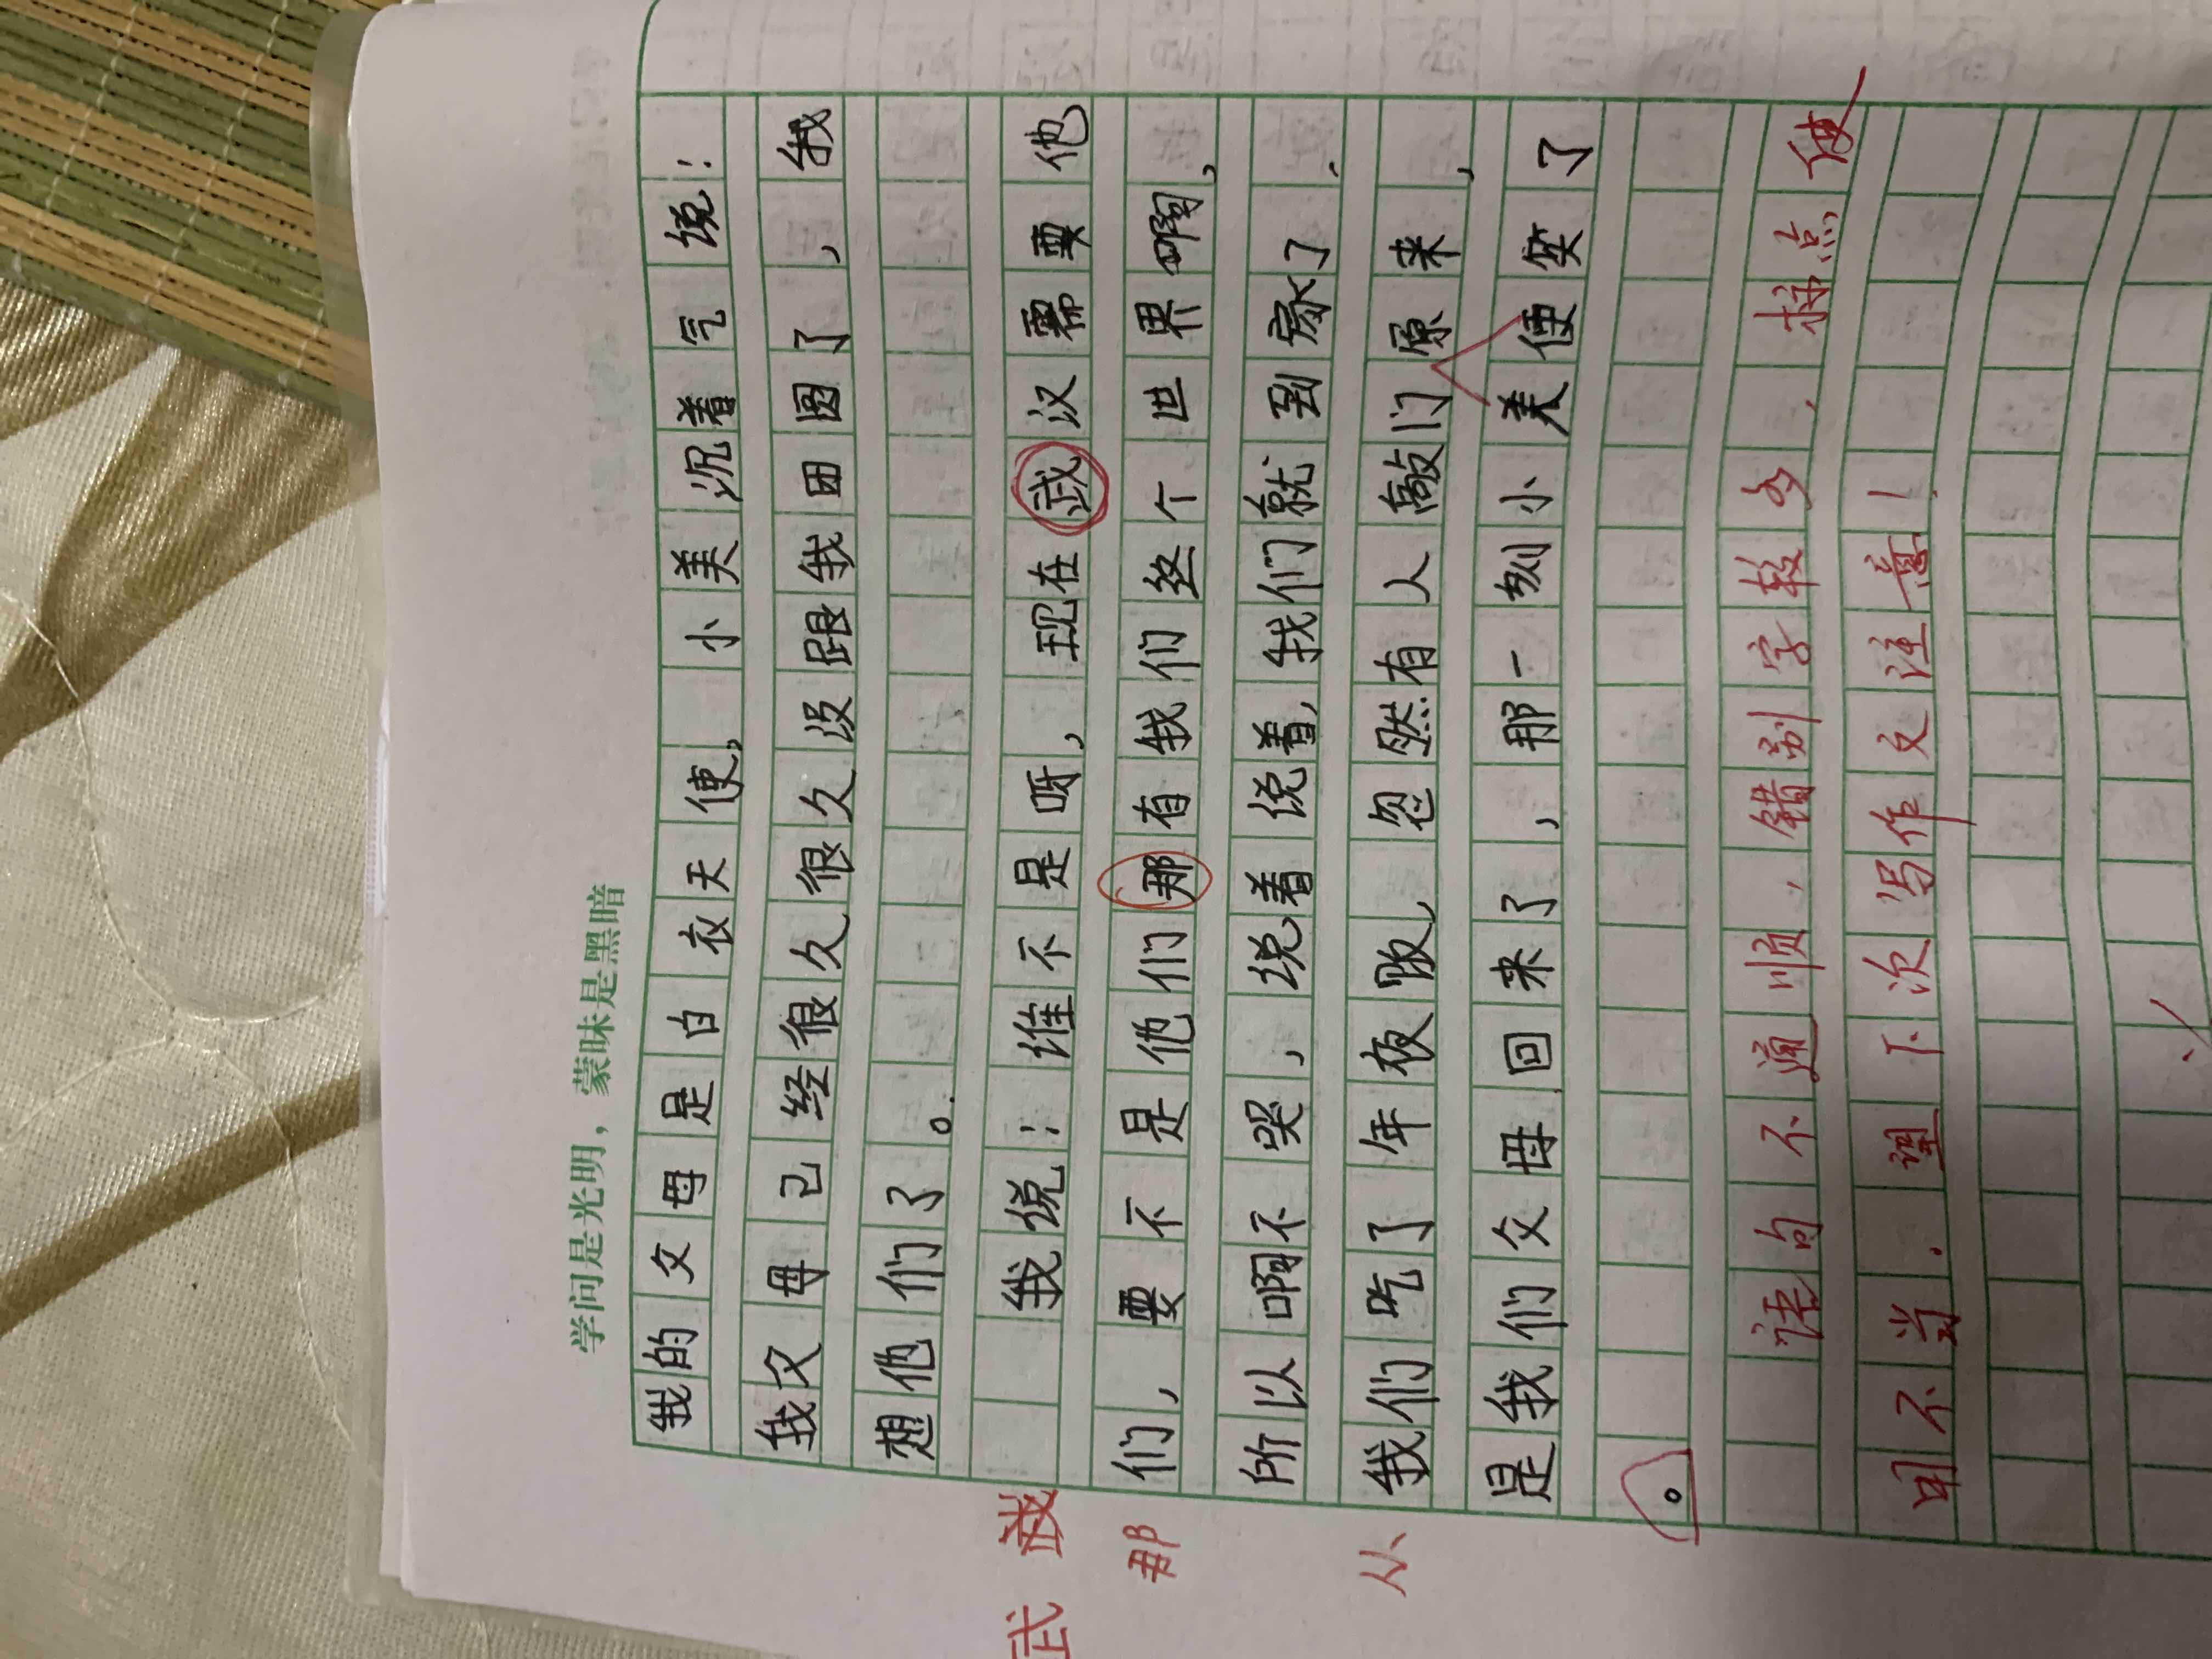 学问是光明，蒙昧是黑暗
我的父母是白衣天使，小美沉着气说：
我父母已经很久很久没跟我团圆了，我
想他们了。
我说：谁不是呀，现在武汉需要他
们，要不是他们那有我们这个世界啊，
所以啊不哭，说着说着，我们就到家了.
我们吃了年夜饭，忽然有人敲门原来，
是我们父母回来了，那一刻小美便笑了
。
武
那
语句不通顺，错别字较多，标点使
用不当.望下次写作文注意！